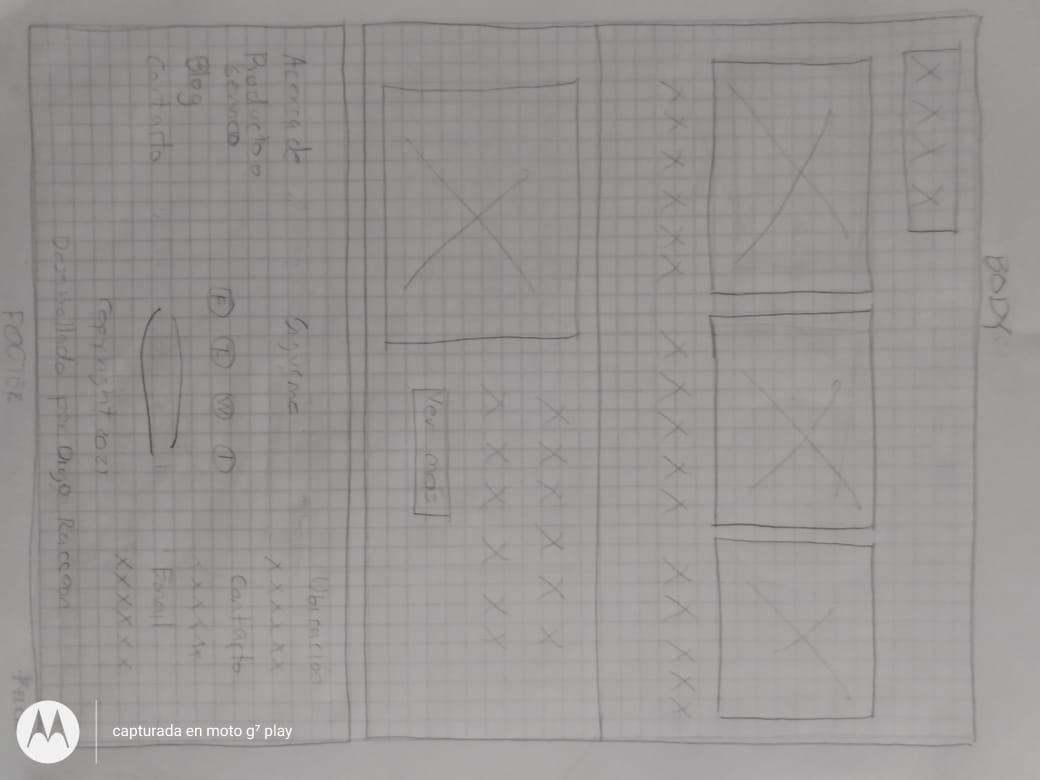 BODY
X X X X
X X X X X X
X X X X X
X X X X X
X X X X X X
X X X X X X
Ver más
Acerca de
Producto o
servico
Blog
Contacto
Sigueme
F
W
I
Copyright 2021
Desarrollado por Digo Raccoon
Ubicacion
X X X X X X
Contacto
Email
X X X X X X
FOOTER
capturada en moto g⁷ play